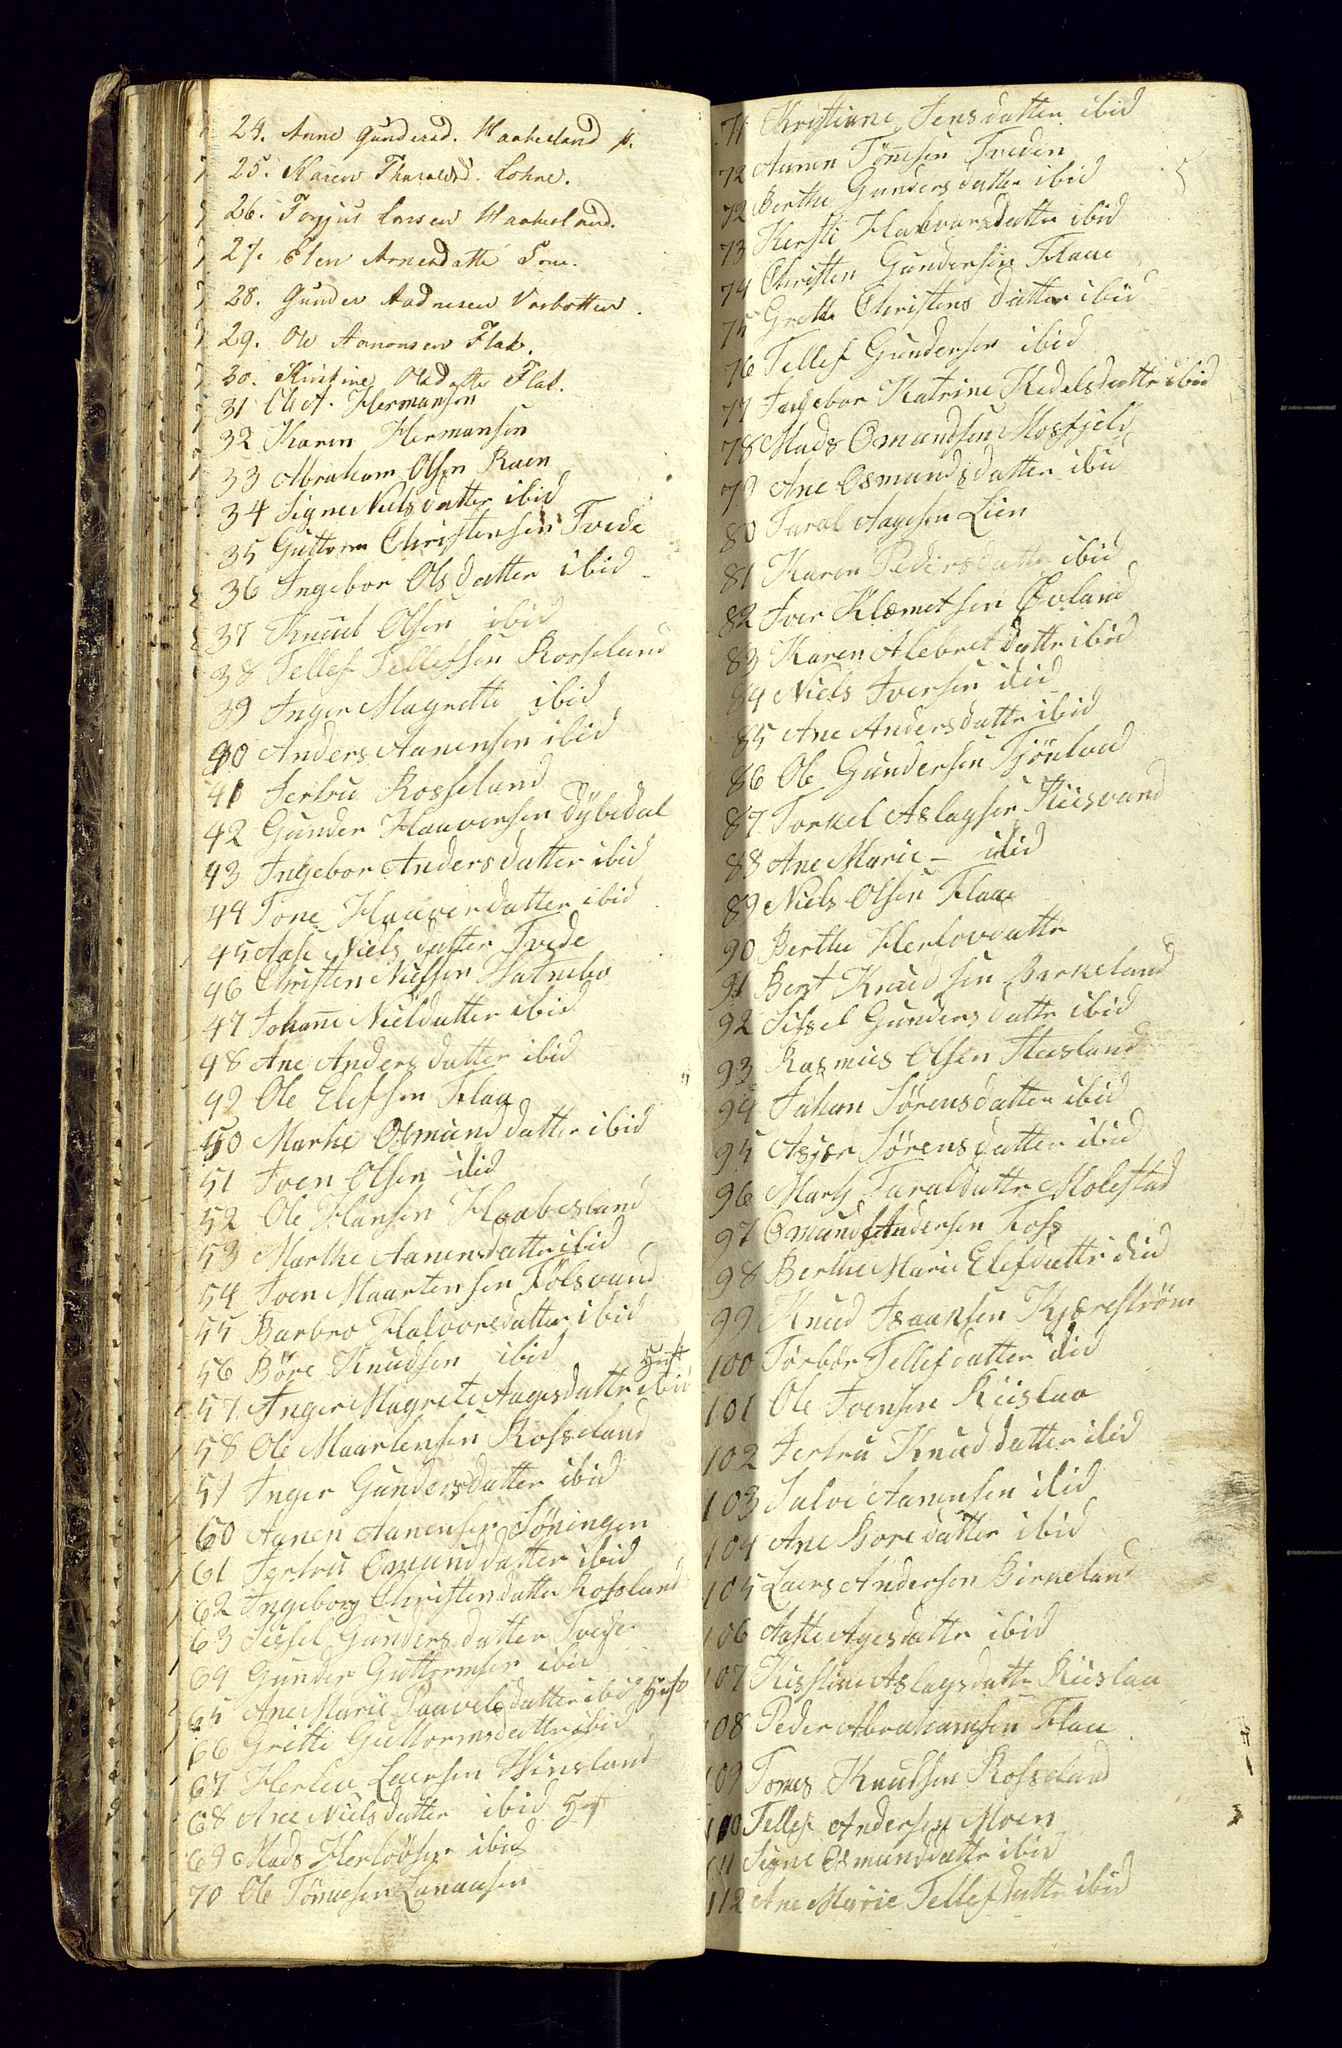 24. Anne Gundersd. Haakeland p.
25. Karen Tharaldsd. Lohne.
26. Torjus Larsen Haakeland.
27. Elen Arnesdatte
28. Gunder Aadnesen Vrobotten.
29. Ole Aanonsen Flak.
30. Kirstine Olsdatte Flak.
31 Ch. A. Hermansen
32 Karen Hermansen
33 Abraham Olsen Raen
34 Signe Nielsdatter ibid
35 Guttorm Christensen Tvede
36 Ingebor Olsdatter ibid
37 Knud Olsen ibid
38 Tellef Tellefsen Rosseland
39 Inger Magrette ibid
40 Anders Aanensen ibid
41 Jertru Rosseland
42 Gunder Haaversen Dybedal
43 Ingebor Andersdatter ibid
44 Tone Haaverdatter ibid
45 Aase Nielsdatter Tvede
46 Christen Nielsen Hatnebo
47 Johane Nieldatter ibid
48 Ane Andersdatter ibid
49 Ole Elefsen Flaa
50 Marthe Osmunddatter ibid
51 Joen Olsen ibid
52 Ole Hansen Haabesland
53 Marthe Aanensdatter ibid
54 Joen Maartensen Fölsvand
55 Barbro Halvorsdatter ibid
56 Böre Knudsen ibid
57 Inger Magrete Aagesdatter ibid
58 Ole Maartensen Rosseland
59 Inger Gundersdatter ibid
60 Aanen Aanensen Söningen
61 Jertru Omunddatter ibid
62 Ingeborg Christensdatter Rosseland
63 Sissel Gundersdatter Tvede
64 Gunder Guttormsen ibid
65 Ane Marie Paavelsdatter ibid
66 Gritte Guttormsdatter ibid
67 Herlev Laersen Hinsland
68 Ane Nielsdatter ibid
69 Mads Herlövsen ibid
70 Ole Tönnesen
71 Christiane Jensdatter ibid
72 Aanen Tönnesen Tveden
72 Berthe Gundersdatter ibid
73 Kersti Halvorsdatter ibid
74 Christen Gundersen Flaae
75 Grette Christensdatter ibid
76 Tellef Gundersen ibid
77 Ingebor Katrine Kedelsdatter ibid
78 Mads Omundsen Mosfjeld
79 Ane Osmundsdatter ibid
80 Taral Aagesen Lien
81 Karen Pedersdatter ibid
82 Iver Klemetsen Øvland
83 Karen Alebretdatter ibid
84 Niels Iversen ibid
85 Ane Andersdatter ibid
86 Ole Gundersen Tjönland
87 Torkel Aslagsen Kiisvand
88 Ane Marie - ibid
89 Niels Olsen Flaae
90 Berthe Herlovdatte
91 Bent Knudsen Barkeland
92 Sissel Gundersdatte ibid
93 Rasmus Olsen Heesland
94 Johan Sörensdatter ibid
95 Asjer Sörensdatter ibid
96 Marty Taraldatte Molestad
97 Omund Andersen Foss
98 Berthe Marie Elefdatte ibid
99 Knud Isaaksen Kjoreström
100 Torbör Tellefdatter ibid
101 Ole Joensen Riislaa
102 Jertru Knuddatter ibid
103 Salve Aanensen ibid
104 Ane Boredatter ibid
105 Laers Andersen Birkeland
106 Aaste Agesdatte ibid
107 Kisstine Aslagsdatte Riislaa
108 Peder Abrahamsen Flaa
109 Tomes Knudsen Rosseland
110 Tellef Andersen Moen
111 Signe Osmunddatte ibid
112 Ane Marie Tellefdatte ibid